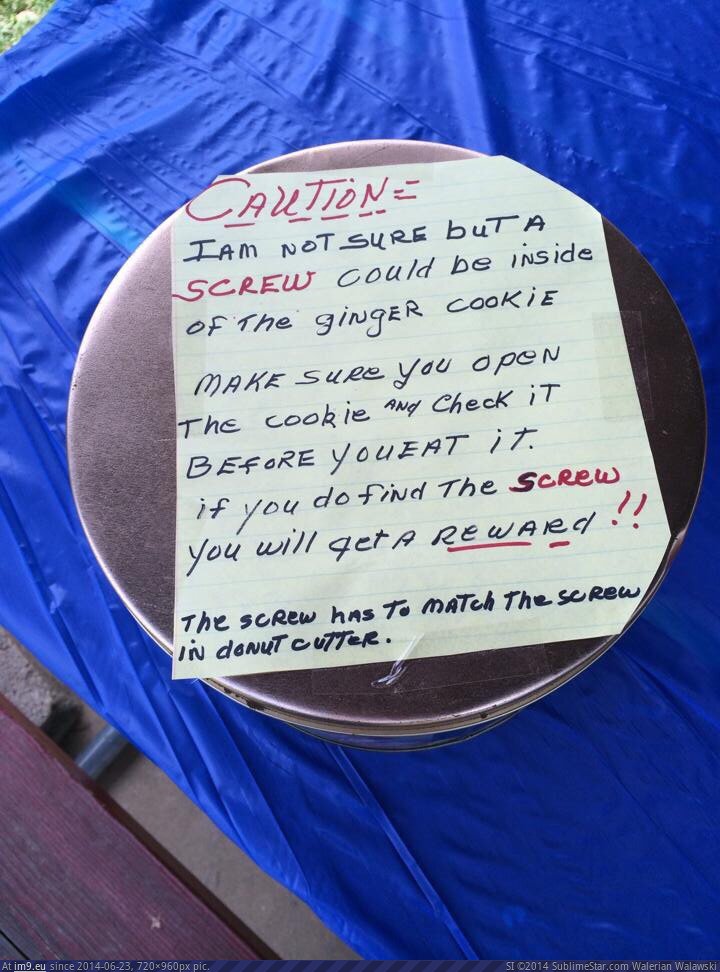 CAUTION=
I AM NOT SURE buT A
SCREW could be iNside
OF The giNgER COOKiE
MAKE SURE you OPEN
The cookie ANd Check iT
BEFORE YOU EAT iT.
if you do fiNd The SCREW
you will get A REWARd !!
The SCREW hAS To MATCh The SCREW
iN dONUT CUTTeR.
At im9.eu since 2014-06-23, 720×960px pic.
SI ©2014 SublimeStar.com Walerian Walawski